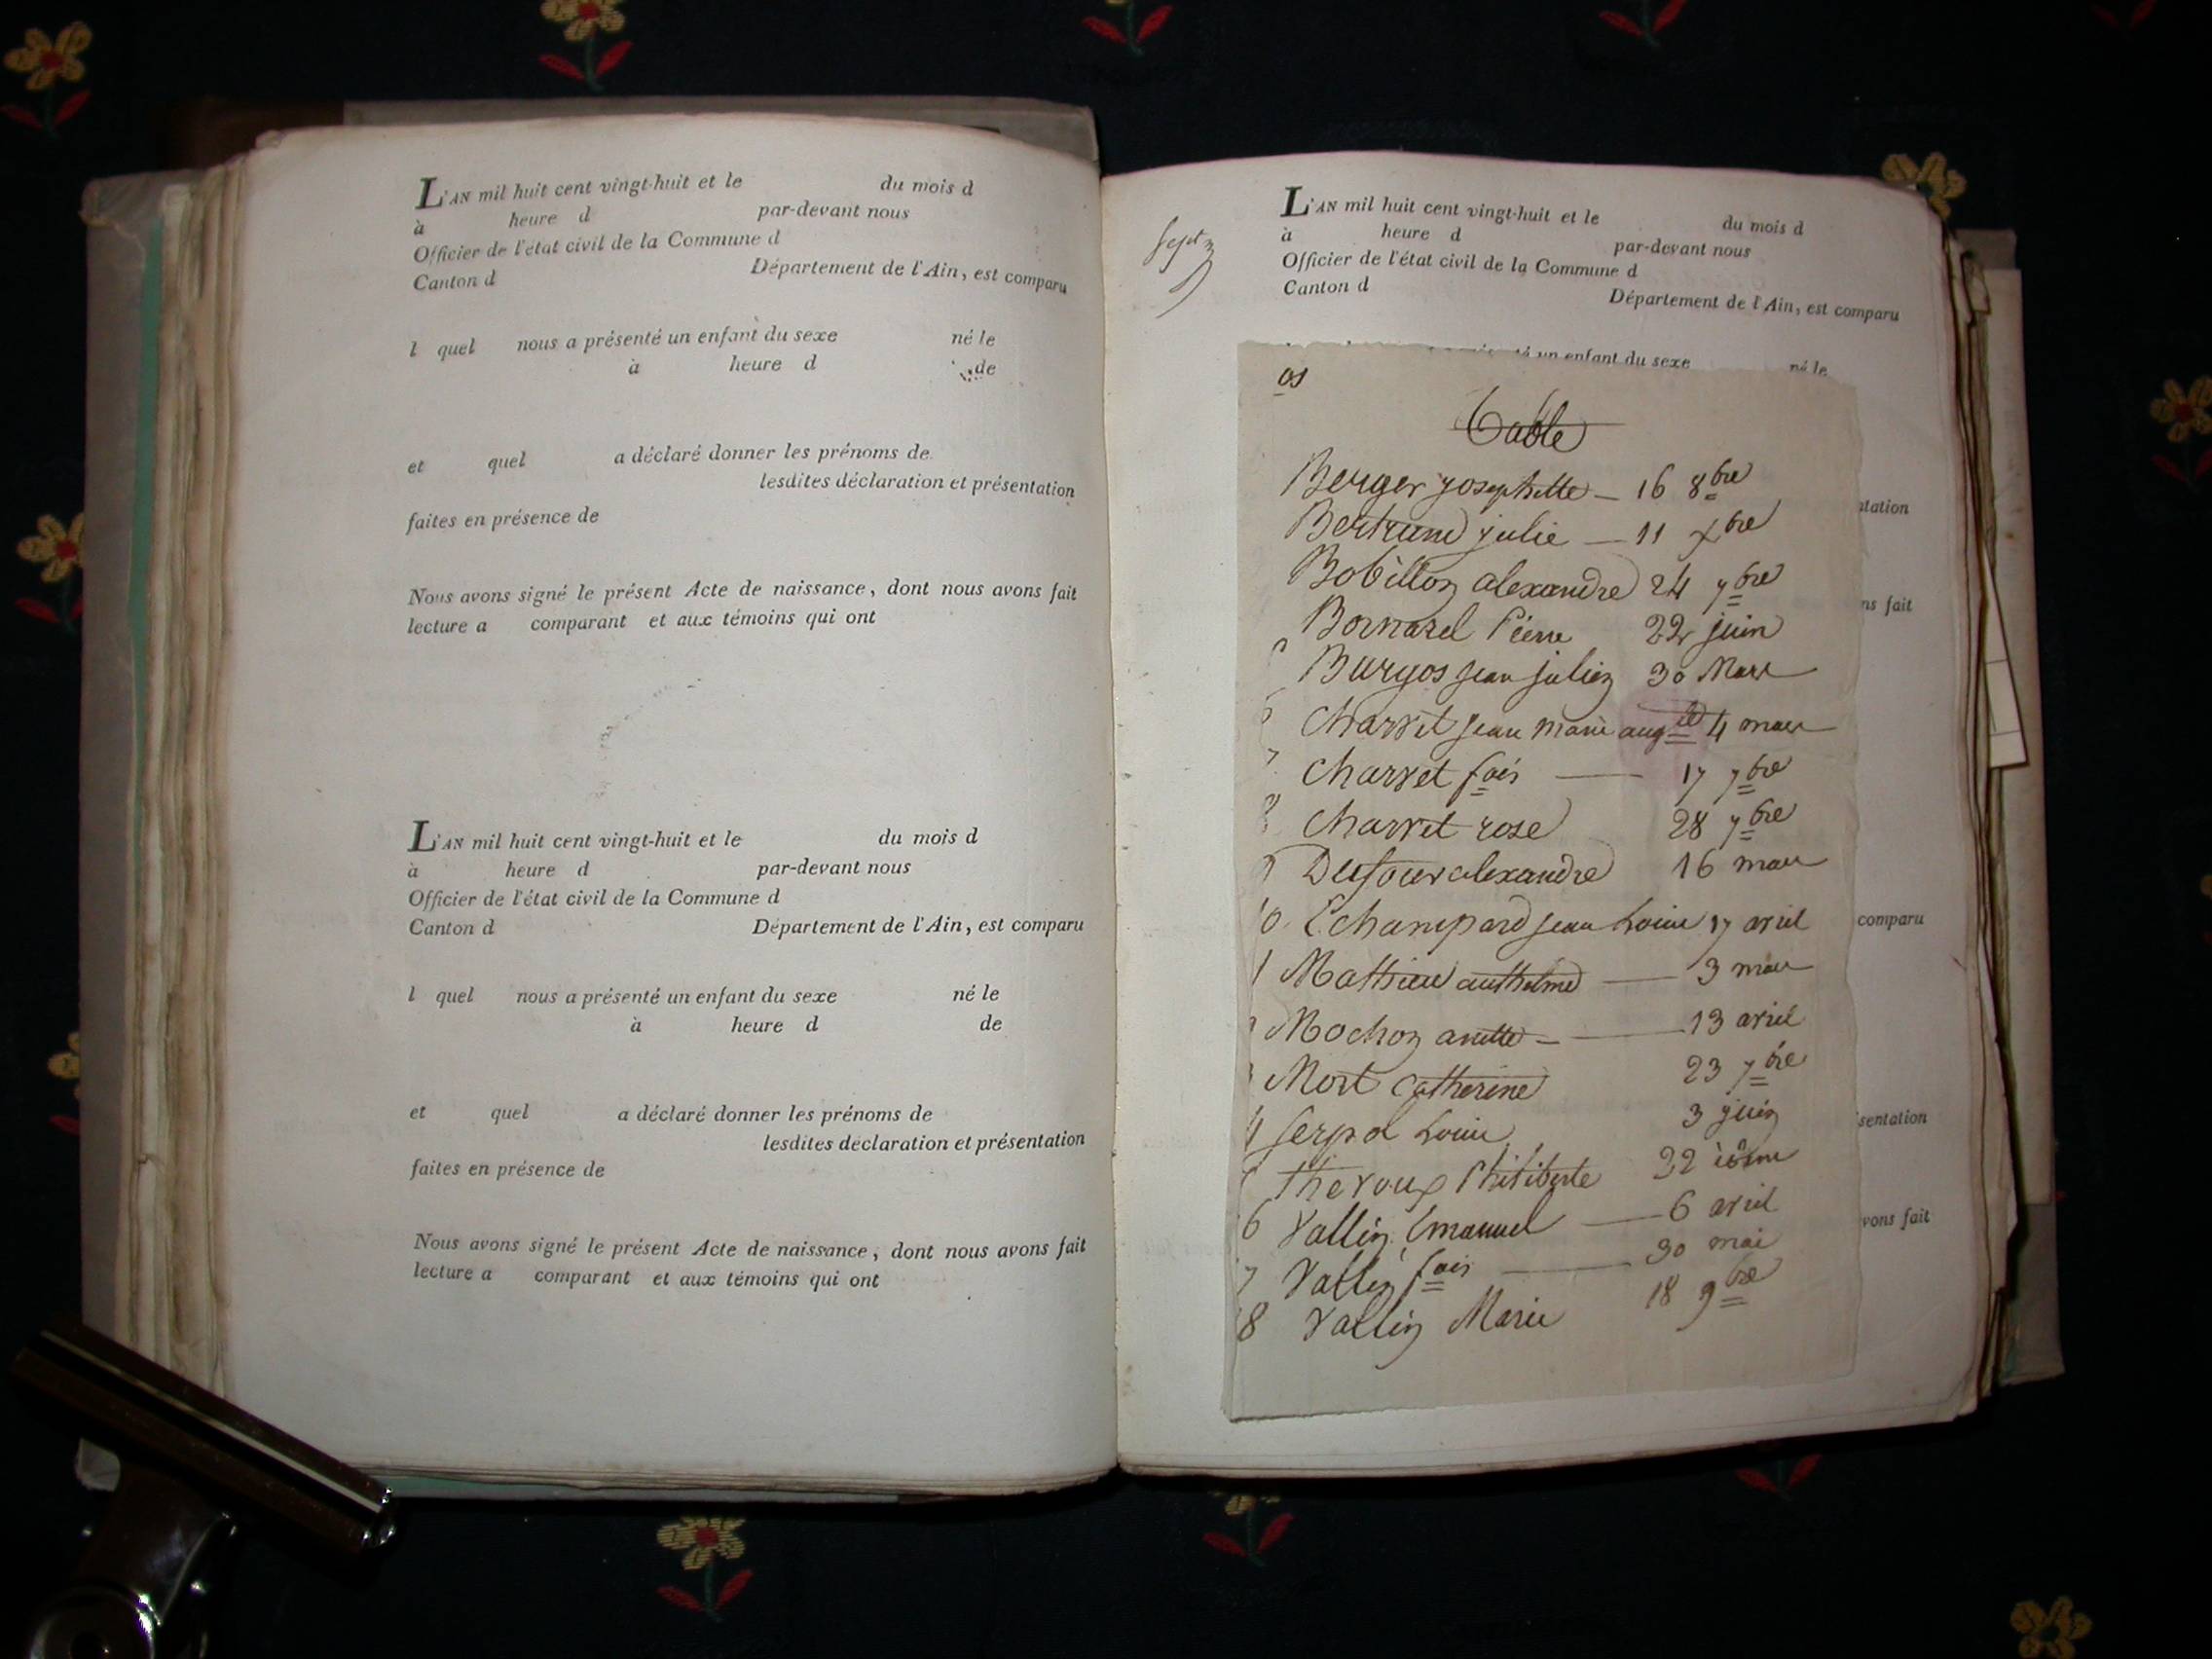 L'AN mil huit cent vingt-huit et le du mois d
à heure d par-devant nous
Officier de l'état civil de la Commune d
Canton d Département de l'Ain, est comparu
l quel nous a présenté un enfant du sexe né le
à heure d de
et quel a déclaré donner les prénoms de
lesdites déclaration et présentation
faites en présence de
Nous avons signé le présent Acte de naissance, dont nous avons fait
lecture a comparant et aux témoins qui ont
L'AN mil huit cent vingt-huit et le du mois d
à heure d par-devant nous
Officier de l'état civil de la Commune d
Canton d Département de l'Ain, est comparu
l quel nous a présenté un enfant du sexe né le
à heure d de
et quel a déclaré donner les prénoms de
lesdites déclaration et présentation
faites en présence de
Nous avons signé le présent Acte de naissance, dont nous avons fait
lecture a comparant et aux témoins qui ont
L'AN mil huit cent vingt-huit et le du mois d
à heure d par-devant nous
Officier de l'état civil de la Commune d
Canton d Département de l'Ain, est comparu
un enfant du sexe né le
Table
Berger josephette — 16 8bre
Bertrand julie — 11 xbre
Bobillon alexandre 24 7bre
Bornarel Pierre 22 juin
Burgos jean julien 30 Mars
6 Charvet jean marie 4 mars
7 Charvet fois — 17 7bre
8 Charvet rose 28 7bre
9 Dufour alexandre 16 mars
10 Echampard jean Louise 17 avril
1 Mathieu anthelme — 3 mars
Mochon anette — 13 avril
3 Mort Catherine 23 7bre
4 Serpol Louise 3 juin
theroux Philiberte 22 idem
6 Vallin Emanuel — 6 avril
7 Vallin fois — 30 mai
18 Vallin Marie 18 9bre
ntation
ns fait
comparu
sentation
vons fait